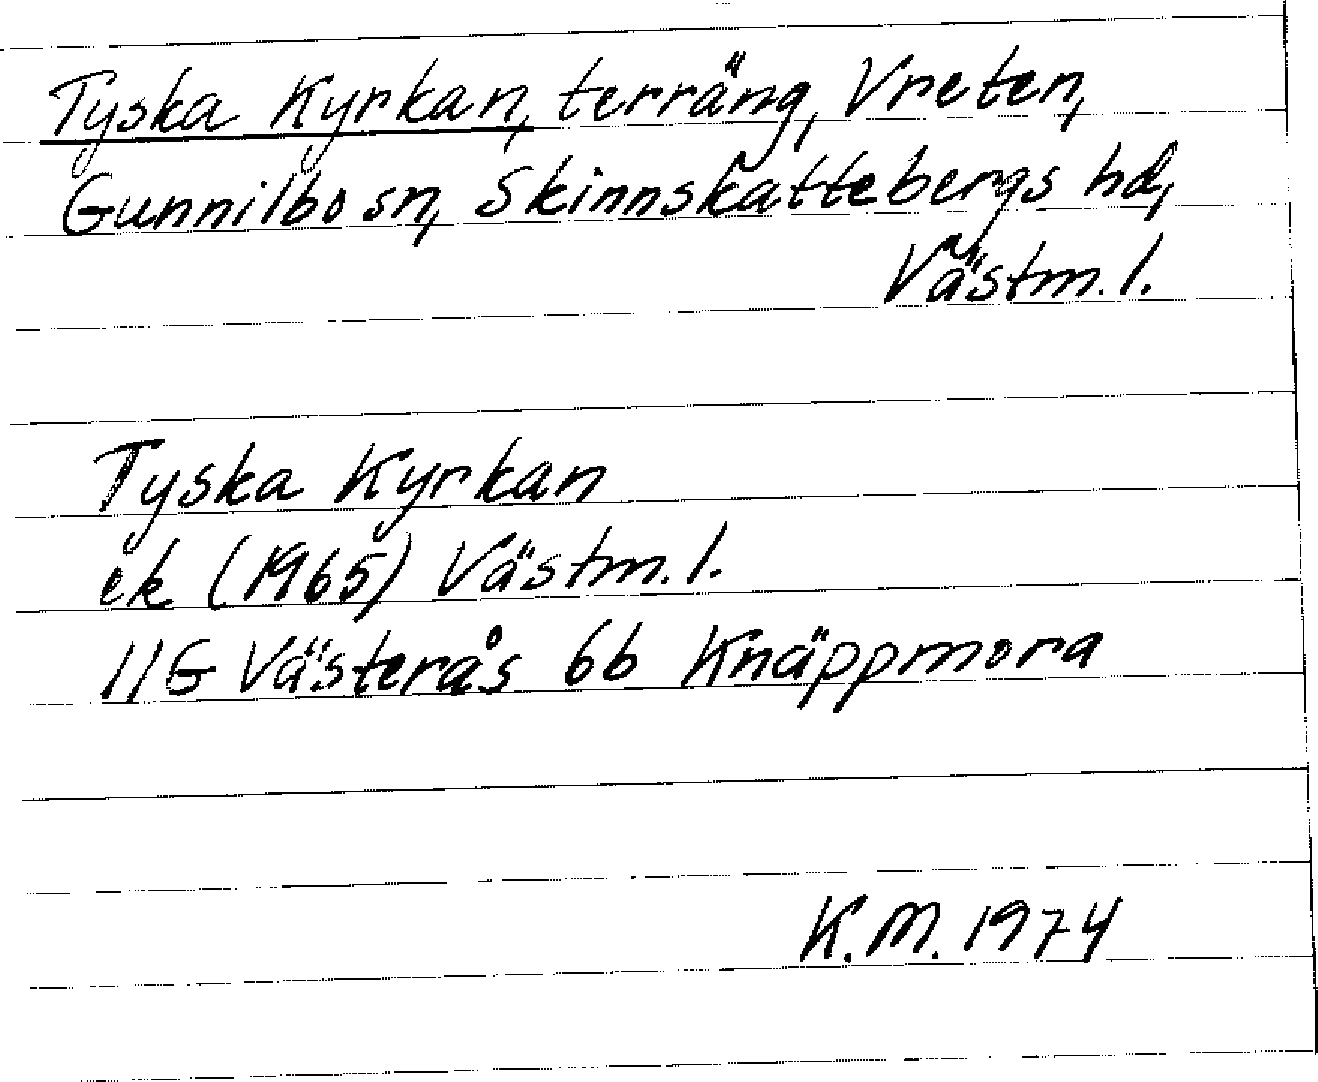 Tyska Kyrkan, terräng, Vreten,
Gunnilbo sn, Skinnskattebergs hd,
Västm. l.
Tyska Kyrkan
ek (1965) Västm. l.
11G Västerås 6b Knäppmora
K.M. 1974